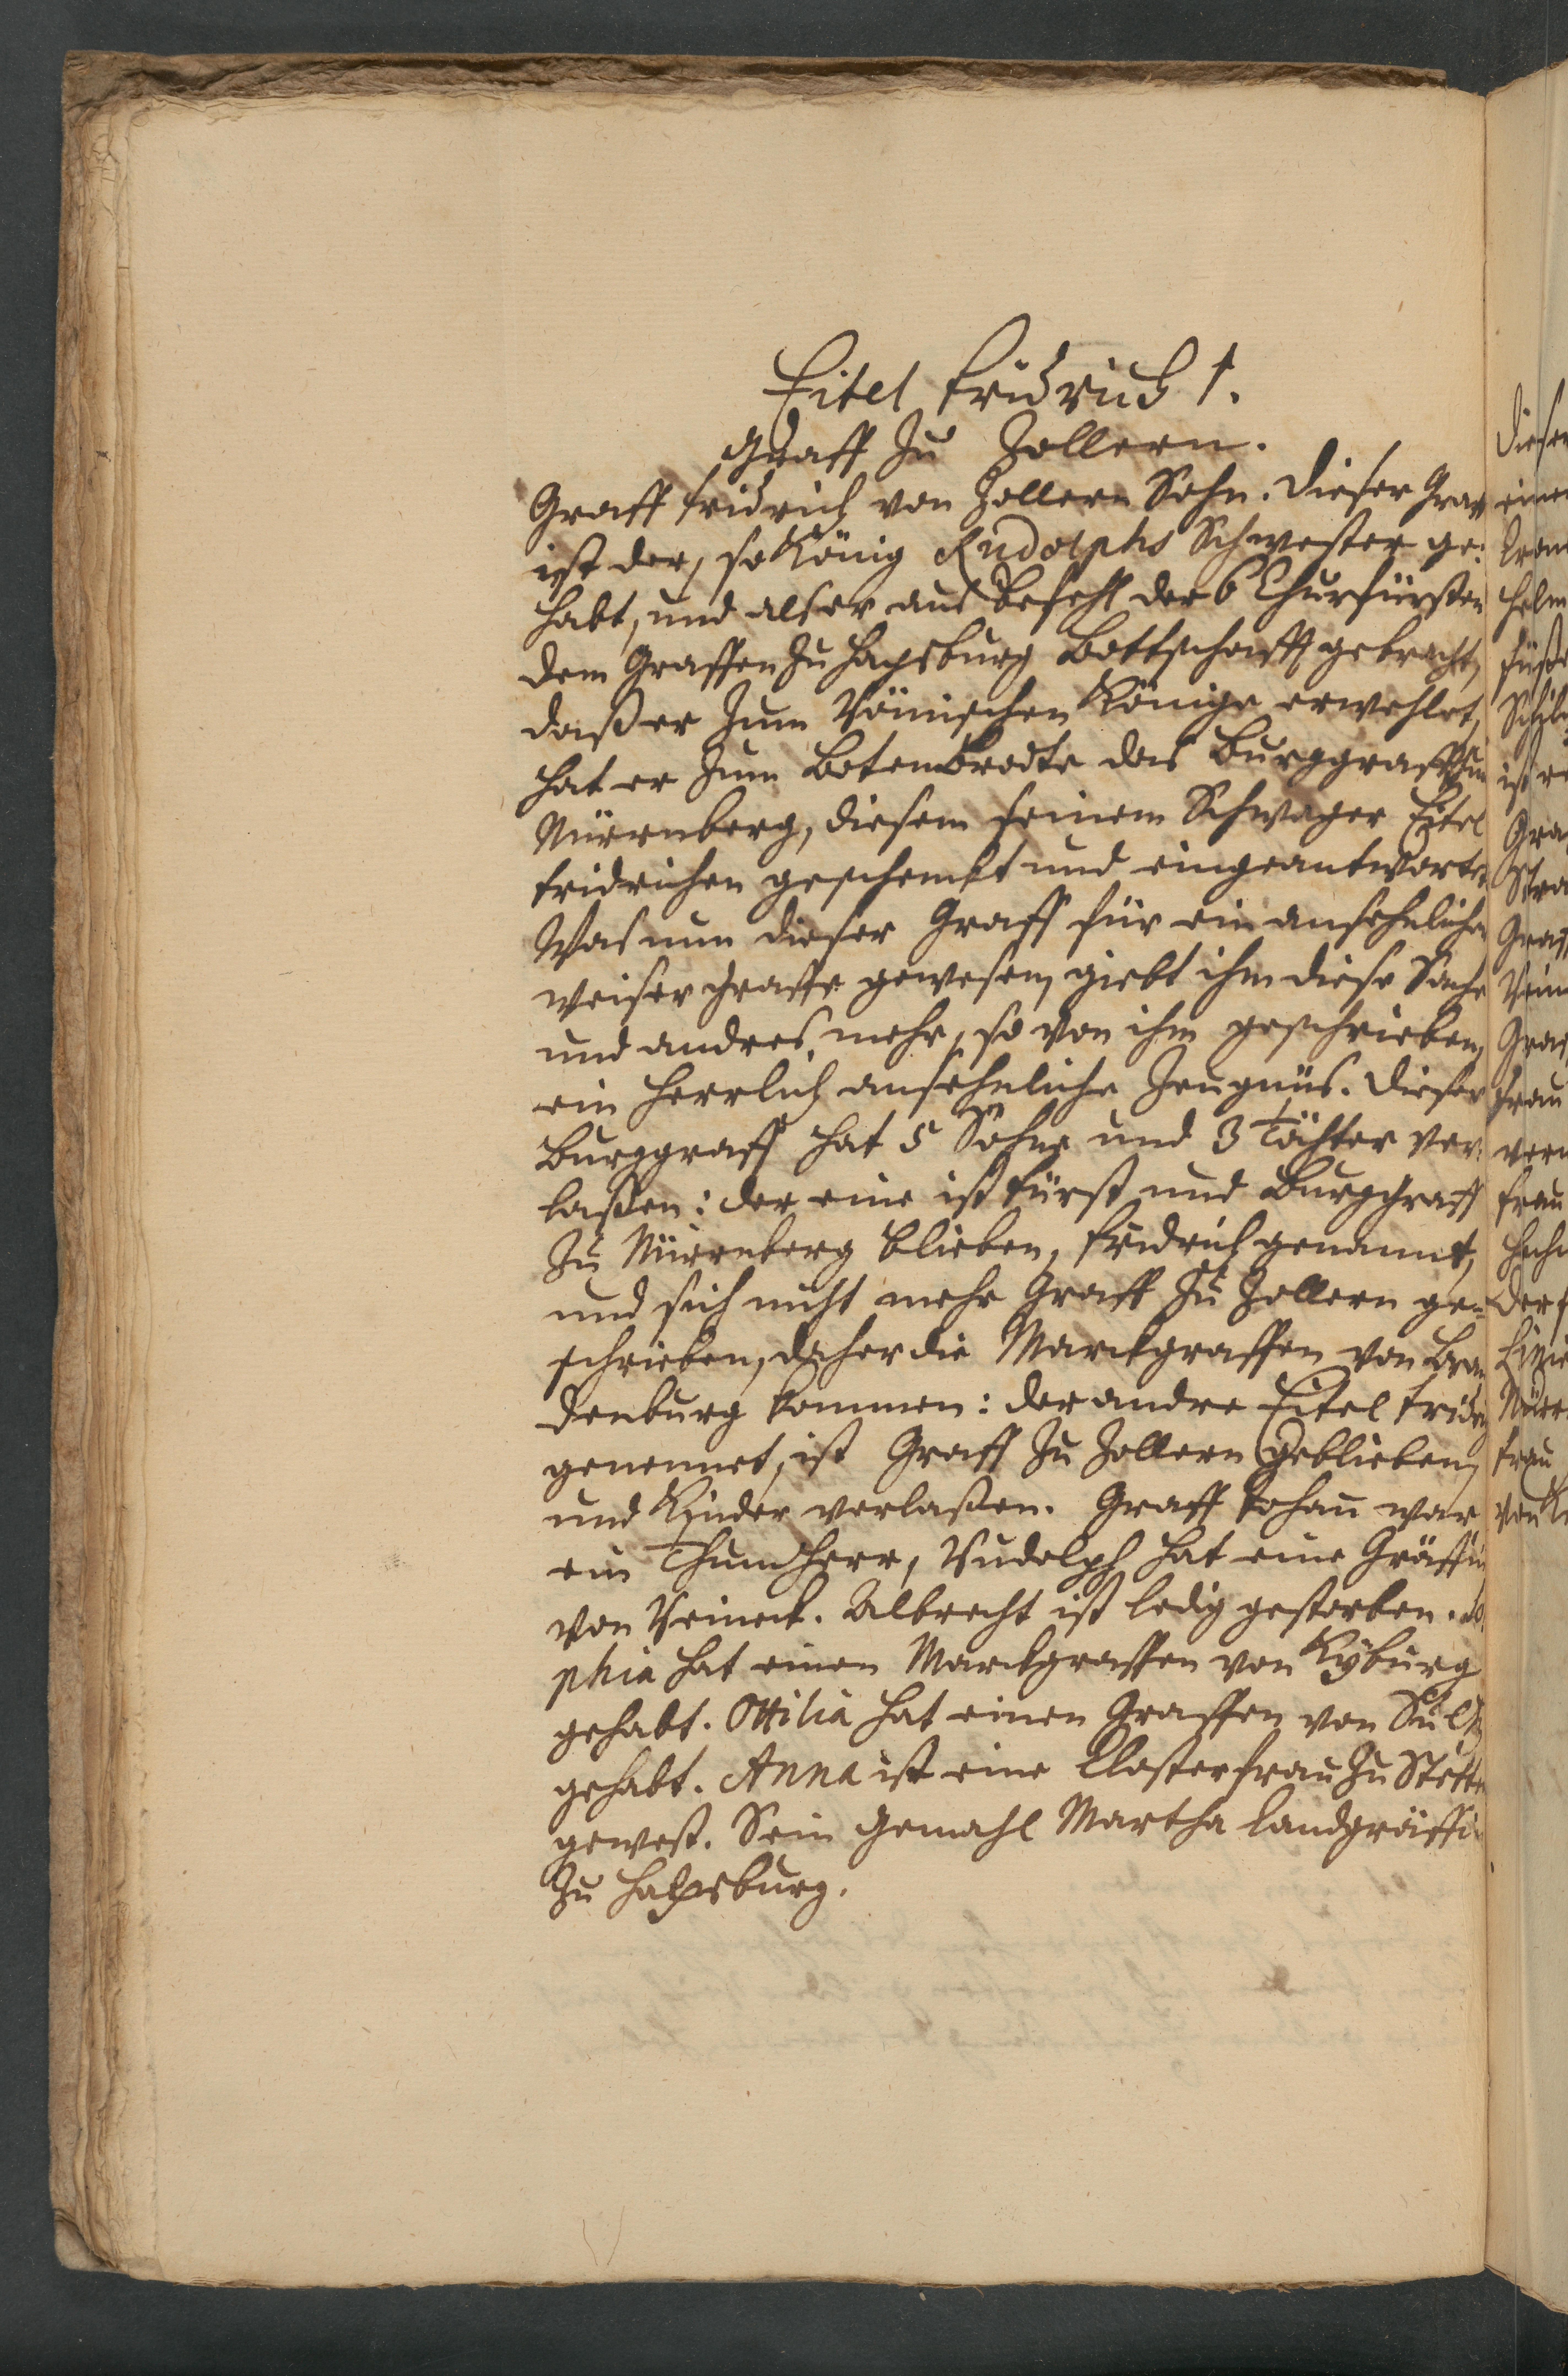 Eitel Fridrich 1.
Graff zu Zollern.
Graff Fridrich von Zollern Sohn. Dieser Graff
ist der, so König Rudolphs Schwester ge-
habt, und als er aus Befehl der 6 Churfürsten
dem Graffen zu Hapsburg Bottschafft gebracht,
daß er zum Römischen Könige erwehlet,
hat er zum Botenbrodte das Burggraffthum
Nürrnberg, diesem seinem Schwager Eitel
Fridrichen geschenckt und eingeantwortet
Was nun dieser Graff für ein ansehnlicher
weiser Graffe gewesen, giebt ihm diese Sache
und andres mehr, so von ihm geschrieben,
ein herrlich ansehnliche Zeugnüs. Dieser
Burggraff hat 5 Söhne und 3 Töchter ver-
laßen: der eine ist Fürst und Burggraff
zu Nürrnberg blieben, Fridrich genannt,
und sich nicht mehr Graff zu Zollern ge-
schrieben, daher die Marckgraffen von Bran
denburg kommen: der andre Eitel Fridrich
genennet, ist Graff zu Zollern geblieben,
und Kinder verlaßen. Graff Johan war
ein Thumherr, Rudolph hat eine Gräffin
von Reineck. Albrecht ist ledig gestorben. So
phia hat einen Marckgraffen von Kyburg
gehabt. Ottilia hat einen Graffen von Sultz
gehabt. Anna ist eine Closterfrau zu Stetten
gewest. Sein Gemahl Martha Landgräffin
zu Hapsburg.